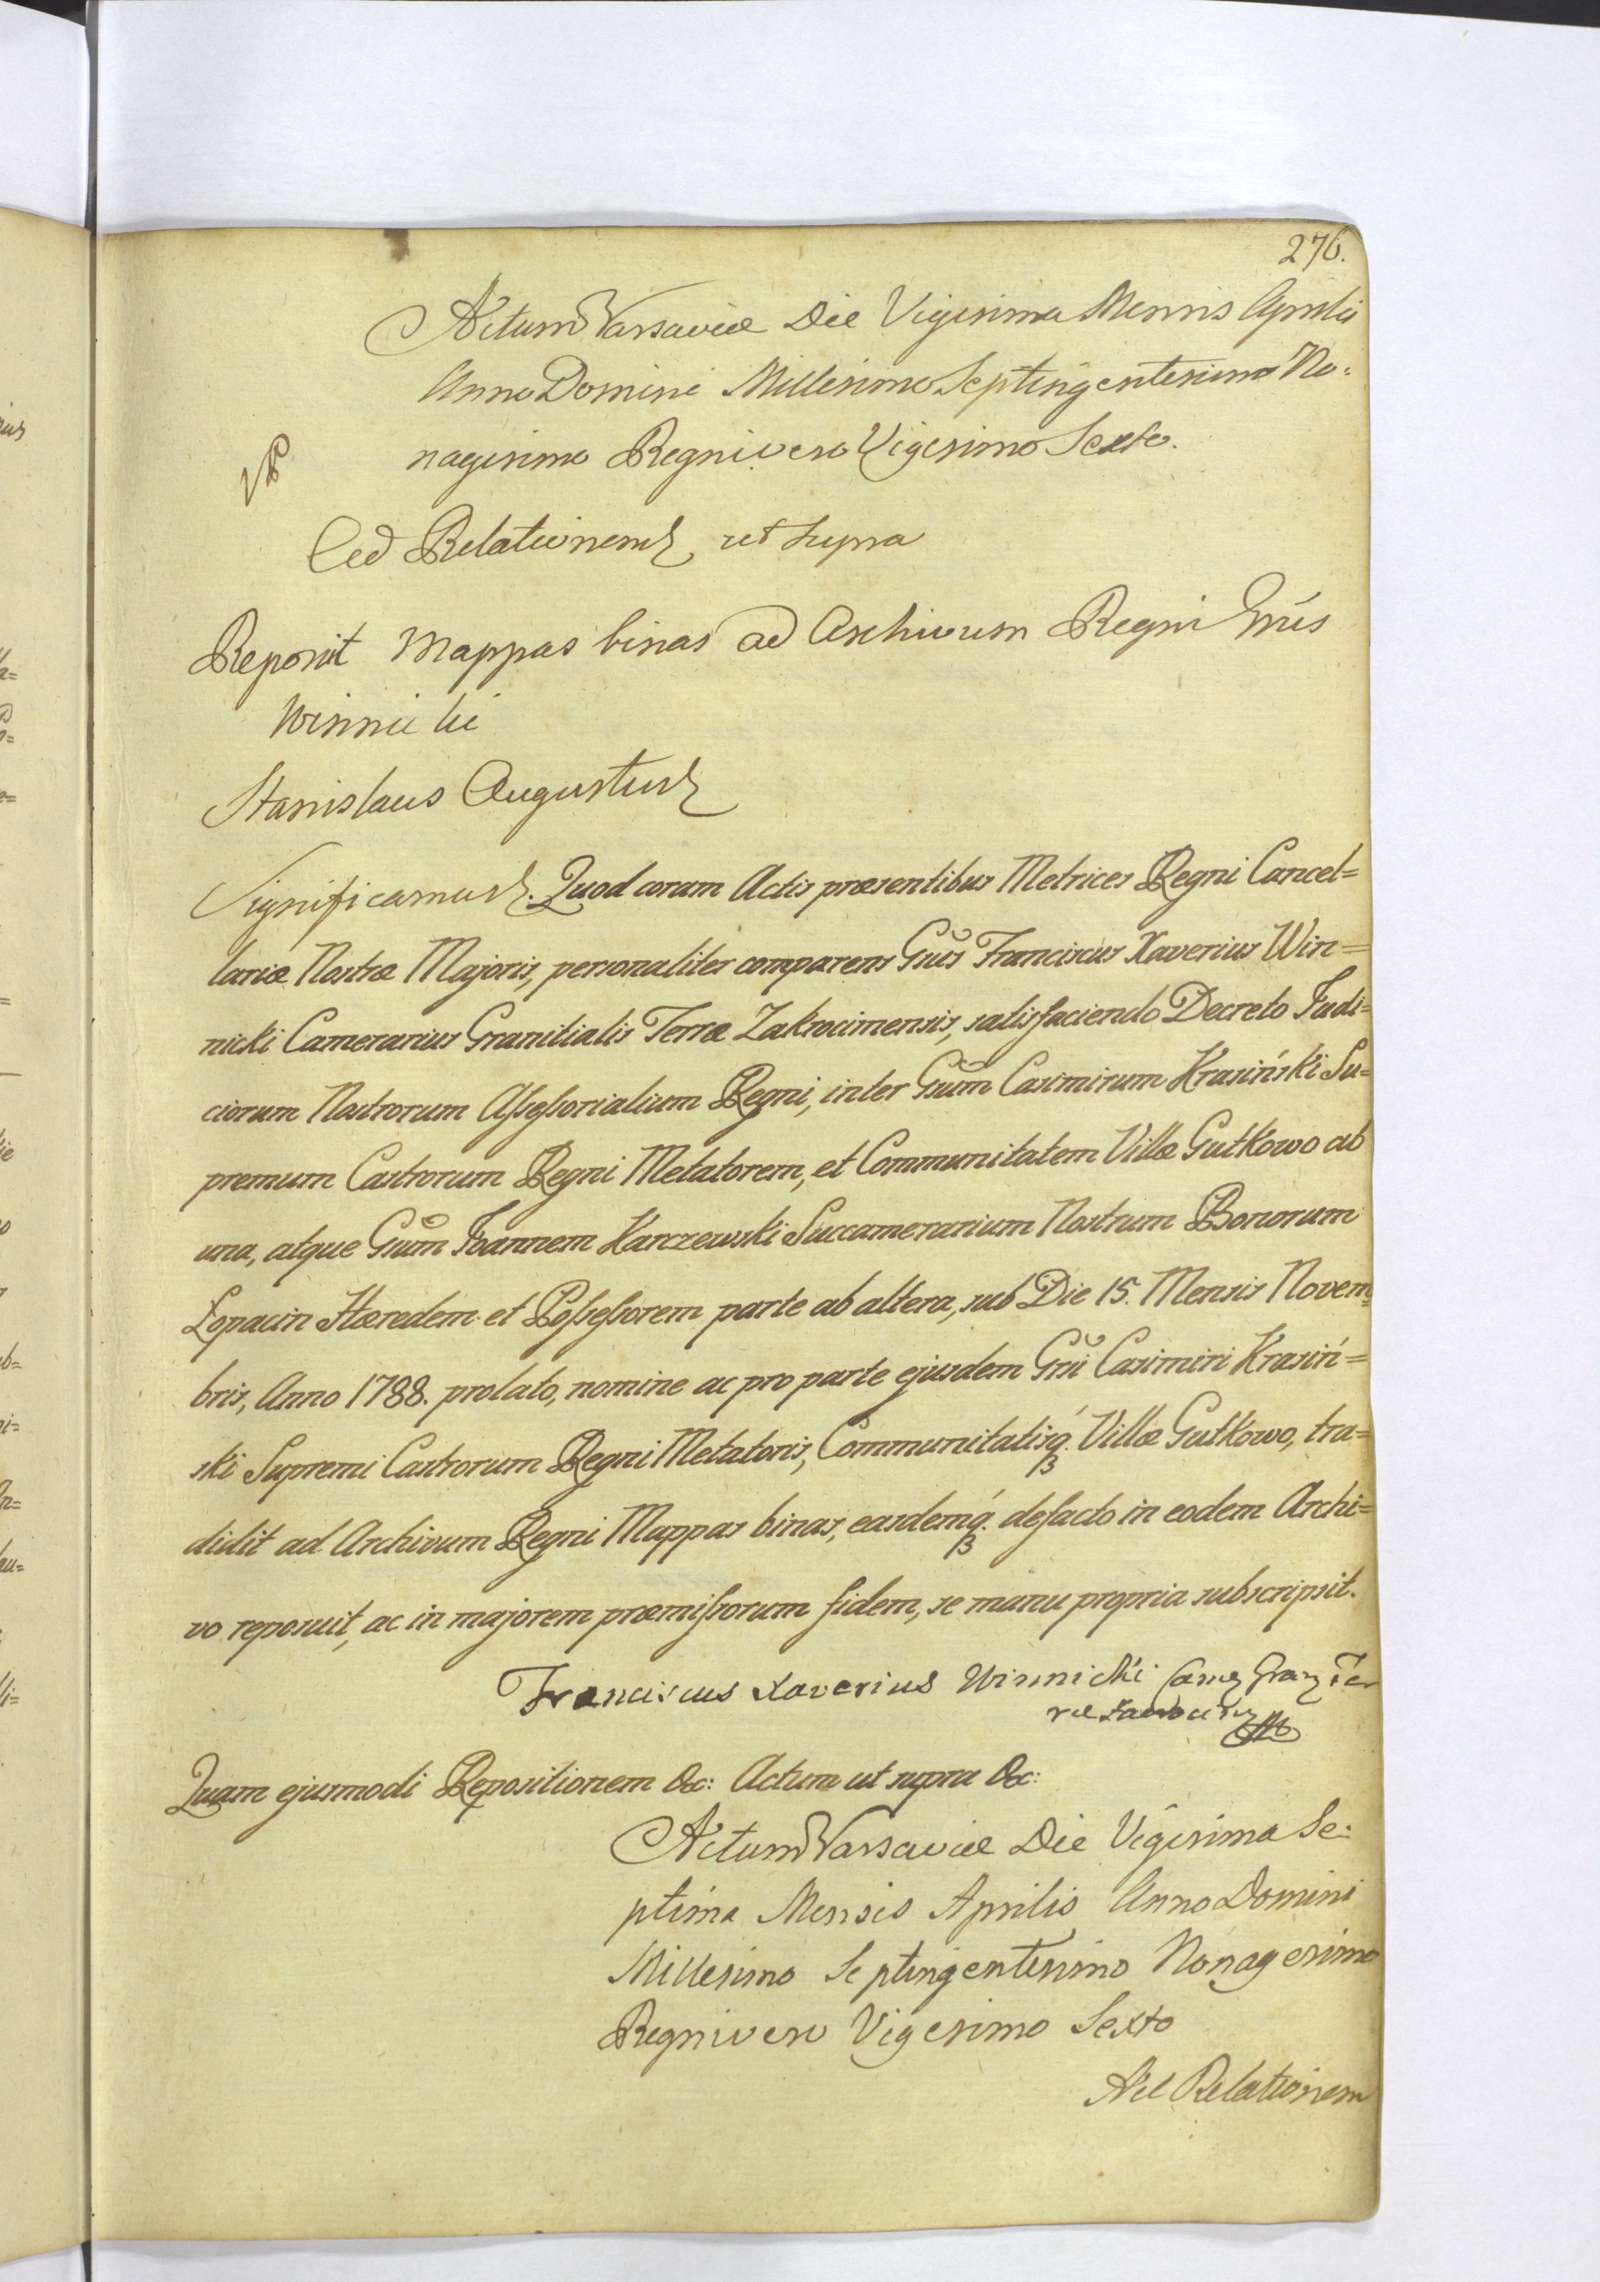 276.
Actum Varsaviæ Die Vigesima Mensis Aprilis
Anno Domini Millesimo Septingentesimo No=
nagesimo Regni vero Vigesimo Sexto.
Ad Relationem ut supra
Reponit Mappas binas ad Archivum Regni Grūs
Winnicki
Stanislaus Augustus
Significamus. Quod coram Actis præsentibus Metrices Regni Cancel=
lariæ Nostræ Majoris, personaliter comparens Grūs Franciscus Xaverius Win=
nicki Camerarius Granitialis Terræ Zakrocimensis, satisfaciendo Decreto Judi=
ciorum Nostrorum Assessorialium Regni, inter Grūm Casimirum Krasiński Su=
premum Castrorum Regni Metatorem, et Communitatem Villæ Gutkowo ab
una, atque Grūm Joannem Karczewski Succamerarium Nostrum Bonorum
Łopacin Hæredem et Possessorem parte ab altera, sub Die 15. Mensis Novem=
bris, Anno 1788. prolato, nomine ac pro parte ejusdem Grī̄i Casimiri Krasiń=
ski Supremi Castrorum Regni Metatoris, Communitatisq́. Villæ Gutkowo, tra=
didit ad Archivum Regni Mappas binas, easdemq́. defacto in eodem Archi=
vo reposuit, ac in majorem præmissorum fidem, se manu propria subscripsit.
Franciscus Xaverius Winnicki Cam Gran Ter
ræ
Quam ejusmodi Repositionem &c: Actum ut supra &c:
Actum Varsaviæ Die Vigesima Se=
ptima Mensis Aprilis Anno Domini
Millesimo Septingentesimo Nonagesimo
Regni vero Vigesimo Sexto
Ad Relationem